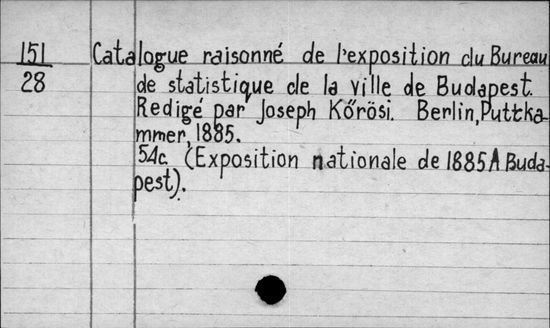 151 Catalogue raisonné de l'exposition du Bureau
28 de statistique de la ville de Budapest.
Redigé par Joseph Kőrösi. Berlin, Puttka-
mmer, 1885.
54c. (Exposition nationale de 1885 A Buda-
pest).